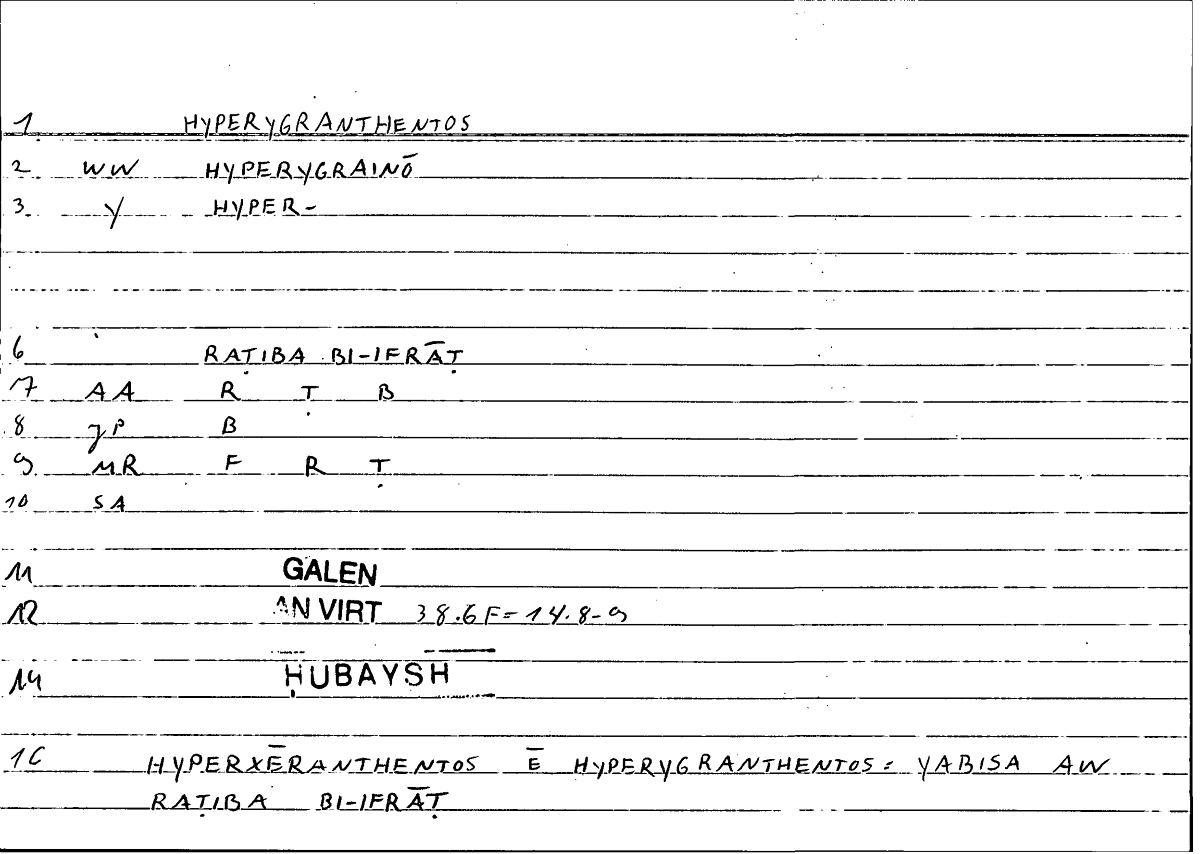 1 HYPERYGRANTHENTOS
2 WW HYPERYGRAINŌ
3 Y HYPER-
6 RAṬIBA BI-IFRĀṬ
7 AA R Ṭ B
8 JP B
9 MR F R Ṭ
10 SA
11 GALEN
12 AN VIRT 38.6 F= 14.8-9
14 ḤUBAYSH
16 HYPERXĒRANTHENTOS Ē HYPERYGRANTHENTOS: YABISA AW
RAṬIBA BI-IFRĀṬ